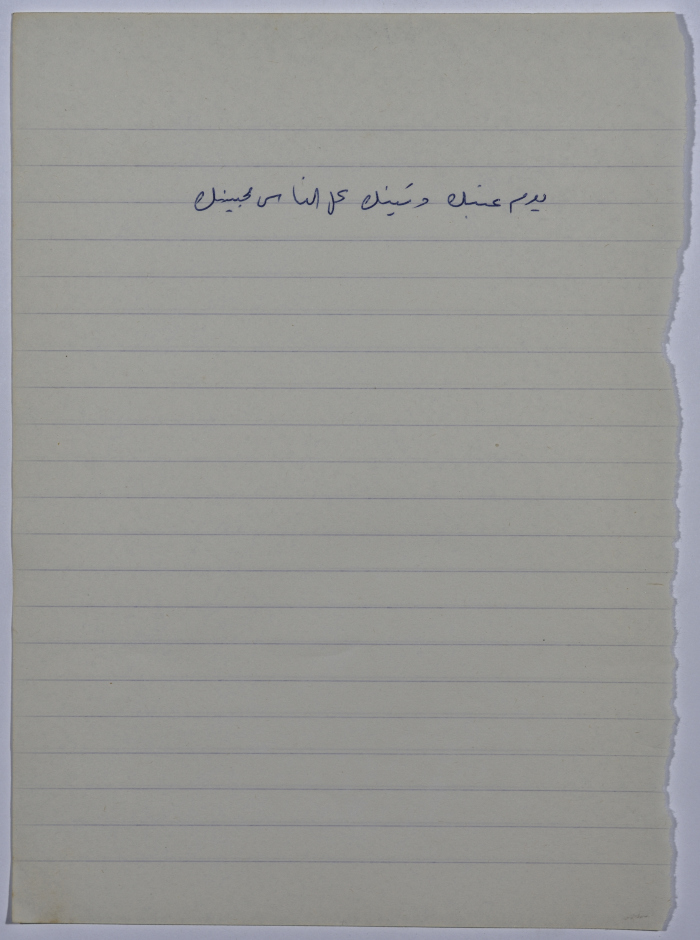 يدم عنبك وتينك كل الناس محبينك